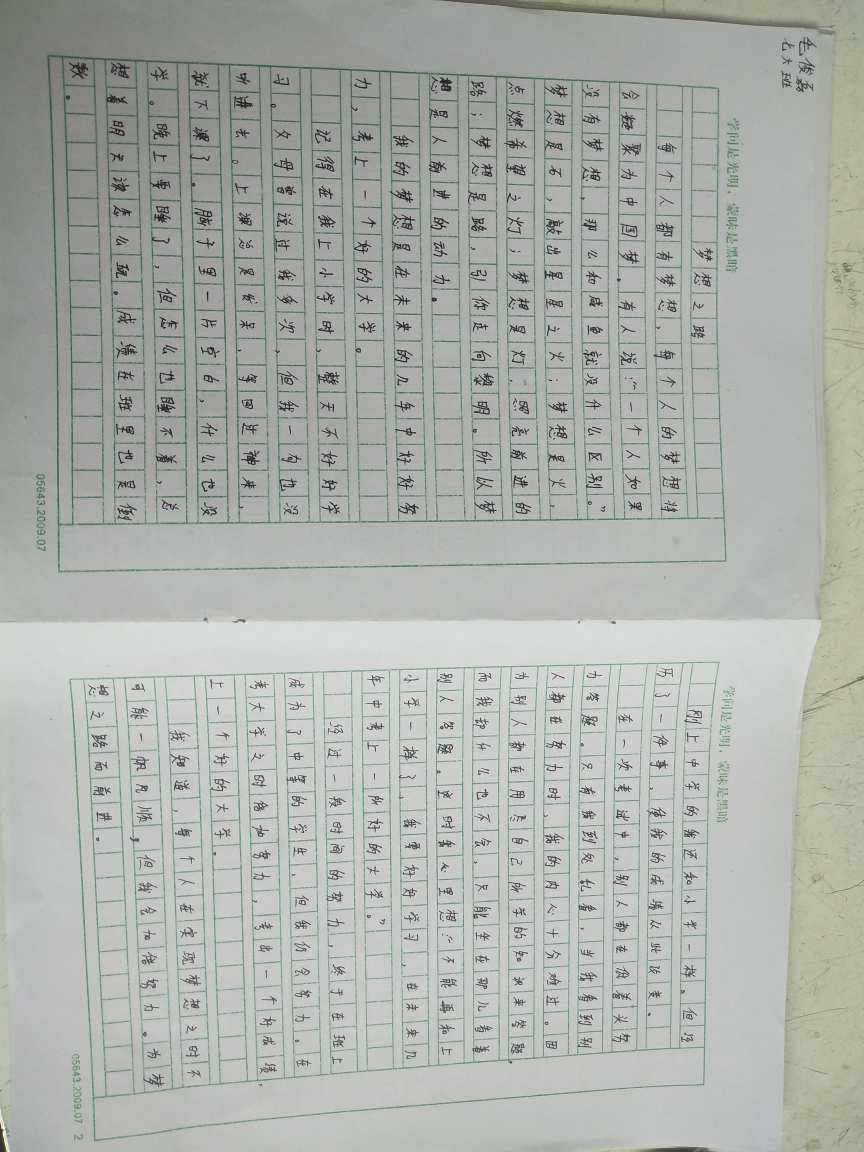 毛俊磊
七六班
学问是光明，蒙昧是黑暗
梦想之路
每个人都有梦想，每个人的梦想将
会凝聚为中国梦。有人说：“一个人如果
没有梦想，那么和咸鱼就没什么区别。”
梦想是石，敲出星星之火；梦想是火，
点燃希望之灯；梦想是灯，照亮前进的
路；梦想是路，引你走向黎明。所以梦
想是人前进的动力。
我的梦想是在未来的几年中好好努
力，考上一个好的大学。
记得在我上小学时，整天不好好学
习。父母曾说过我多次，但我一句也没
听进去。上课总是发呆，等回过神来，
就下课了。脑子里一片空白，什么也没
学。晚上要睡了，但怎么也睡不着，总
想着明天该怎么玩。成绩在班里也是倒
数。
05643.2009.07
学问是光明，蒙昧是黑暗
刚上中学的我还和小学一样。但经
历了一件事，使我的成绩从此改变。
在一次考试中，别人都在低着头努
力答题。只有我到处乱看，当我看到别
人都在努力时，我的内心十分难过。因
为别人都在用尽自己所学的知识来答题，
而我却什么也不会，只能坐在那儿看着
别人答题。这时我心里想：“不能再和上
小学一样了，我要好好学习，在未来几
年中考上一所好的大学。”
经过一段时间的努力，终于在班上
成为了中等的学生，但我仍会努力。在
考大学之时倍加努力，考出一个好成绩，
上一个好的大学。
我知道，每个人在实现梦想之时不
可能一帆风顺，但我会加倍努力。为梦
想之路而前进。
05643.2009.07 2